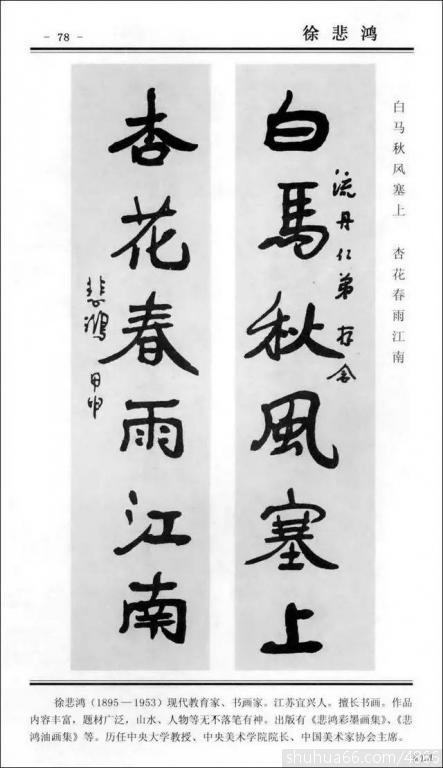 - 78 -
徐悲鸿
白马秋风塞上 杏花春雨江南
流丹仁弟存念
白馬秋風塞上
杏花春雨江南
悲鴻 甲申
徐悲鸿(1895—1953)现代教育家、书画家。江苏宜兴人。擅长书画。作品
内容丰富，题材广泛，山水、人物等无不落笔有神。出版有《悲鸿彩墨画集》、《悲
鸿油画集》等。历任中央大学教授、中央美术学院院长、中国美术家协会主席。
shuhua66.com/4866